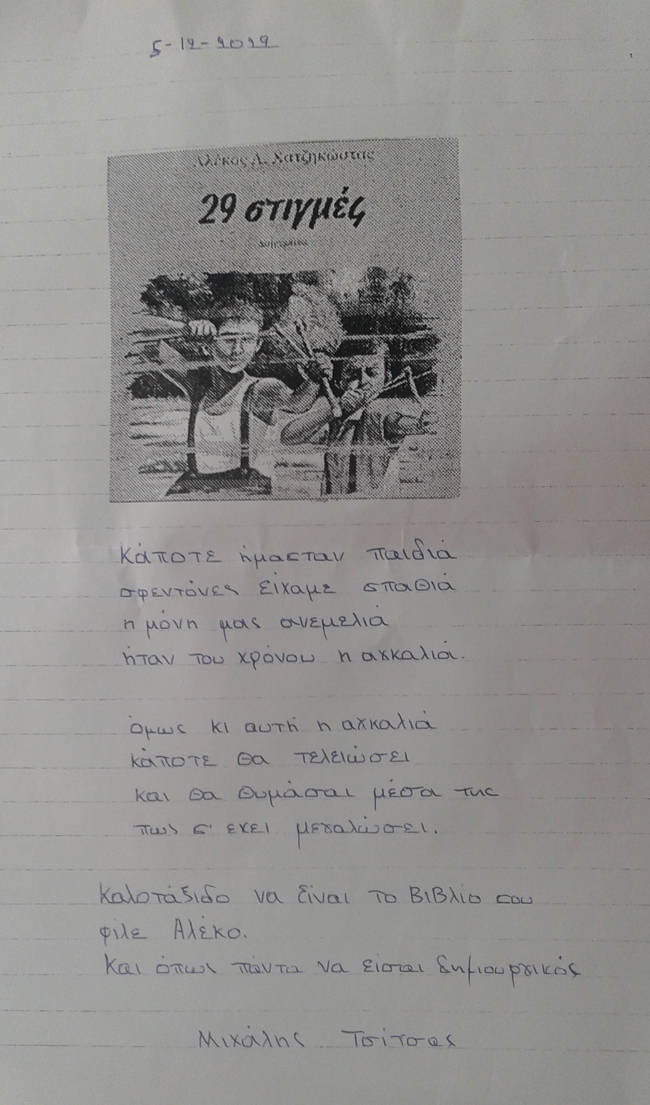 5-12-2022
Αλέκος Α. Χατζηκώστας
29 στιγμές
Διηγήματα
κάποτε ήμασταν παιδιά
σφεντόνες είχαμε σπαθιά
η μόνη μας ανεμελιά
ήταν του χρόνου η αγκαλιά.
όμως κι αυτή η αγκαλιά
κάποτε θα τελειώσει
και θα θυμάσαι μέσα της
πως σ' εχει μεγαλώσει.
Καλοτάξιδο να είναι το βιβλίο σου
φίλε Αλέκο.
Και όπως πάντα να είσαι δημιουργικός
Μιχάλης Τσίτσας